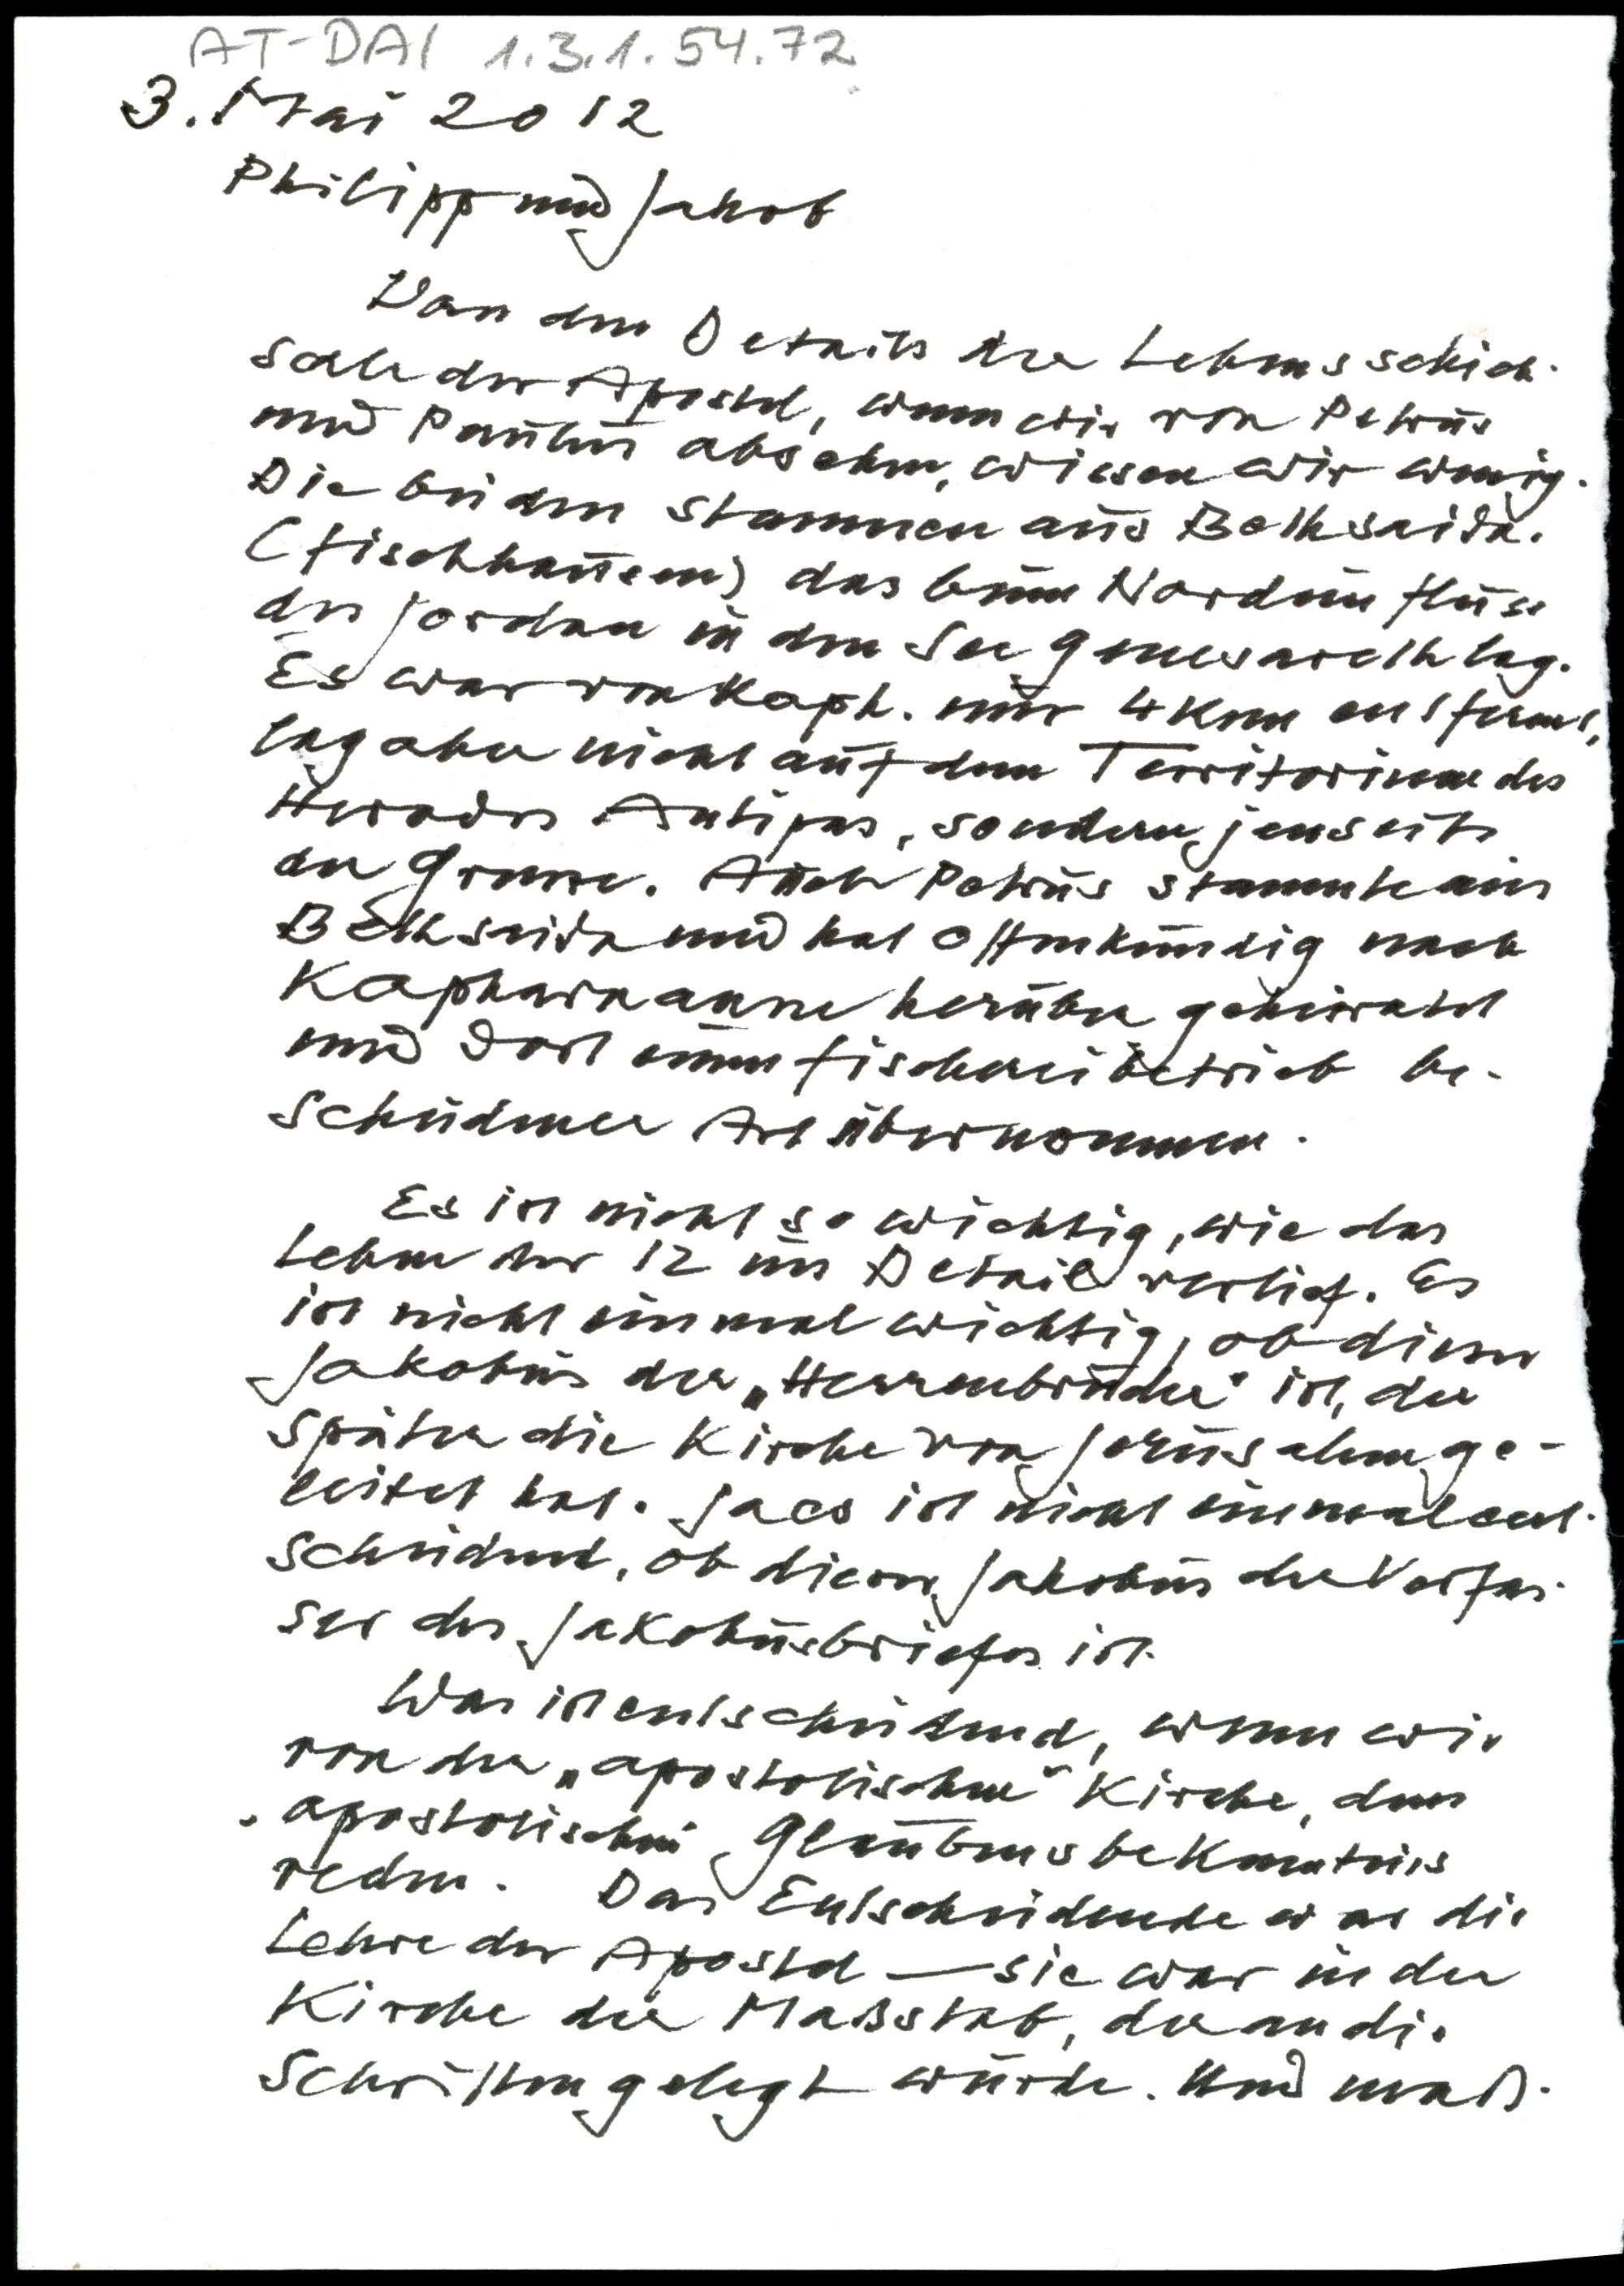 AT-DAI 1.3.1.54.72
3. Mai 2012
Philipp und Jakob
Von den Details der Lebensschick-
sale der Apostel, wenn wir von Petrus
und Paulus absehen, wissen wir wenig.
Die beiden stammen aus Bethsaida.
(Fischhausen) das beim Nordeinfluss
des Jordan in den See Genesareth lag.
Es war von Kaph. nur 4 Km entfernt,
lag aber nicht auf dem Territorium des
Herodes Antipas, sondern jenseits
der Grenze. Auch Petrus stammte aus
Bethsaida und hat offenkundig nach
Kapharnaum herüber geheiratet
und dort einen Fischereibetrieb be-
scheidener Art übernommen.
Es ist nicht so wichtig, wie das
Leben der 12 im Detail verlief. Es
ist nicht einmal wichtig, ob dieser
Jakobus der „Herrenbruder" ist, der
später die Kirche von Jerusalem ge-
leitet hat. Ja es ist nicht einmal ent-
scheidend, ob dieser Jakobus der Verfas-
ser des Jakobusbriefes ist.
Was ist entscheidend, wenn wir
von der „apostolischen" Kirche, dem
„apostolischen" Glaubensbekenntnis
reden. Das Entscheidende war die
Lehre der Apostel — sie war in der
Kirche der Maßstab, der an die
Schriften gelegt wurde. Und maß-